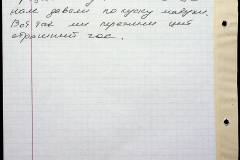 нам давали по куску макухи.
Вот так мы пережили цей
страшний час.